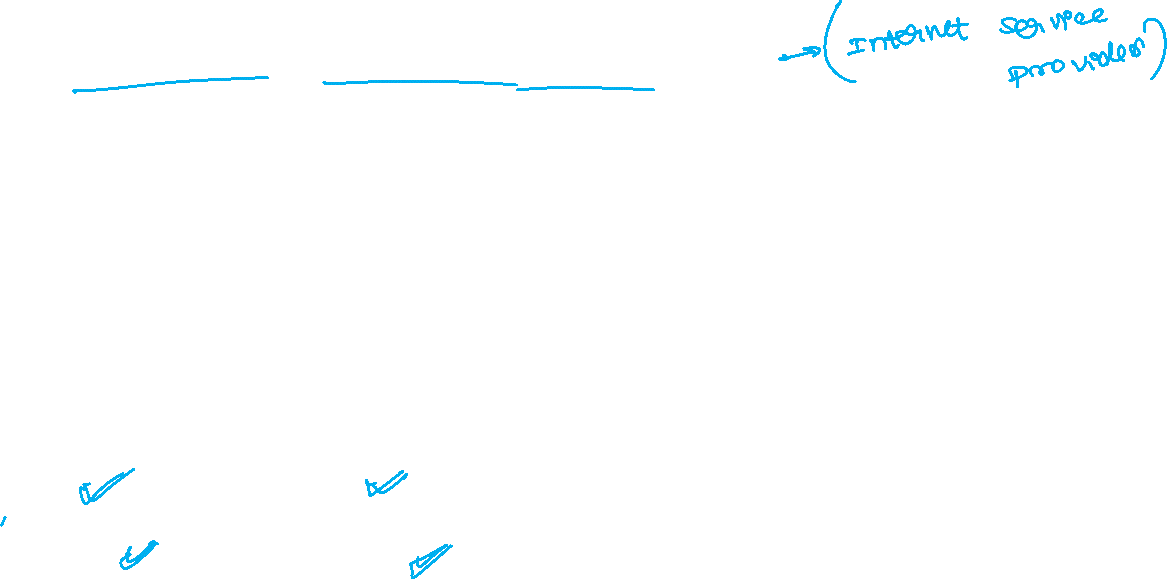 → (Internet service
provider)